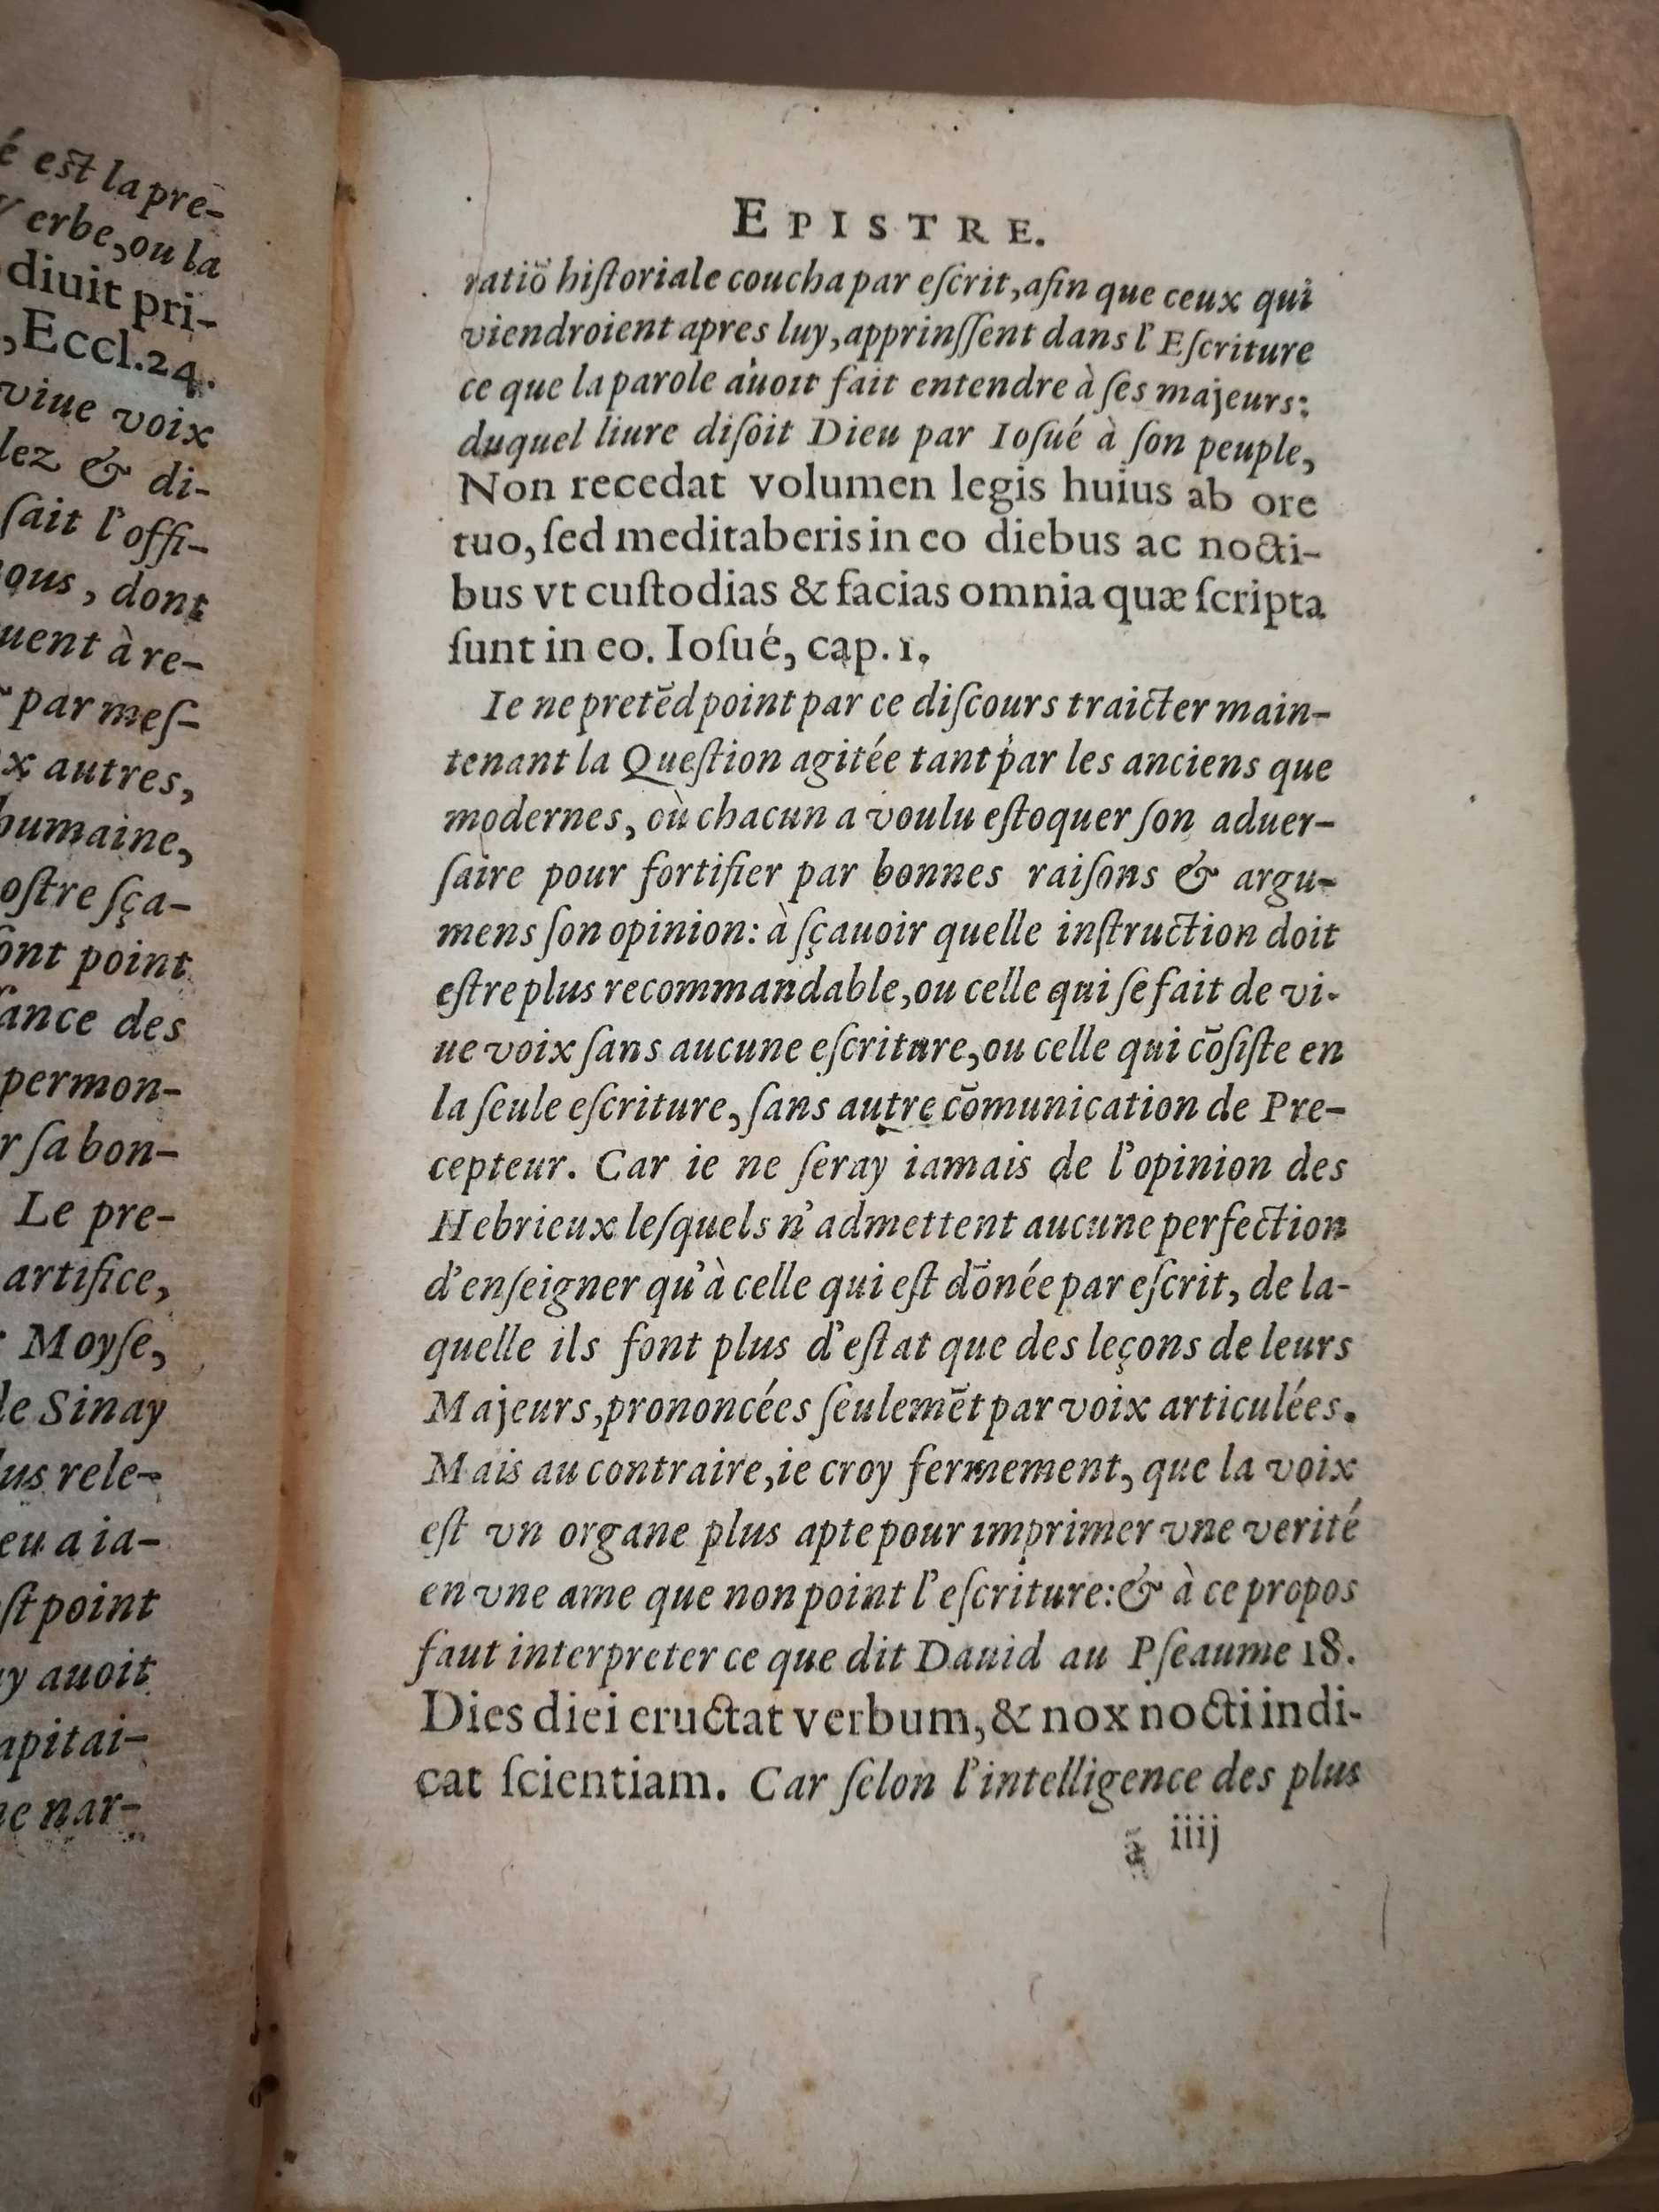 é est la pre-
Verbe, ou la
diuit pri-
, Eccl. 24.
viue voix
lez & di-
ſait l'offi-
ous, dont
uent à re-
par meſ-
x autres,
humaine,
oſtre ſça-
ont point
ance des
permon-
r ſa bon-
Le pre-
artifice,
Moyſe,
le Sinay
lus rele-
eu a ia-
ſt point
y auoit
apitai-
ne nar-
EPISTRE.
ratiõ hiſtoriale coucha par eſcrit, afin que ceux qui
viendroient apres luy, apprinſſent dans l'Eſcriture
ce que la parole auoit fait entendre à ſes majeurs:
duquel liure diſoit Dieu par Ioſué à ſon peuple,
Non recedat volumen legis huius ab ore
tuo, ſed meditaberis in eo diebus ac nocti-
bus vt cuſtodias & facias omnia quæ ſcripta
ſunt in eo. Ioſué, cap. 1.
Ie ne pretẽd point par ce diſcours traicter main-
tenant la Queſtion agitée tant par les anciens que
modernes, où chacun a voulu eſtoquer ſon aduer-
ſaire pour fortifier par bonnes raiſons & argu-
mens ſon opinion: à ſçauoir quelle inſtruction doit
eſtre plus recommandable, ou celle qui ſe fait de vi-
ue voix ſans aucune eſcriture, ou celle qui cõſiſte en
la ſeule eſcriture, ſans autre cõmunication de Pre-
cepteur. Car ie ne ſeray iamais de l'opinion des
Hebrieux leſquels n'admettent aucune perfection
d'enſeigner qu'à celle qui eſt dõnée par eſcrit, de la-
quelle ils font plus d'eſtat que des leçons de leurs
Majeurs, prononcées ſeulemẽt par voix articulées.
Mais au contraire, ie croy fermement, que la voix
eſt vn organe plus apte pour imprimer vne verité
en vne ame que non point l'eſcriture: & à ce propos
faut interpreter ce que dit Dauid au Pſeaume 18.
Dies diei eructat verbum, & nox nocti indi-
cat ſcientiam. Car ſelon l'intelligence des plus
ã iiij